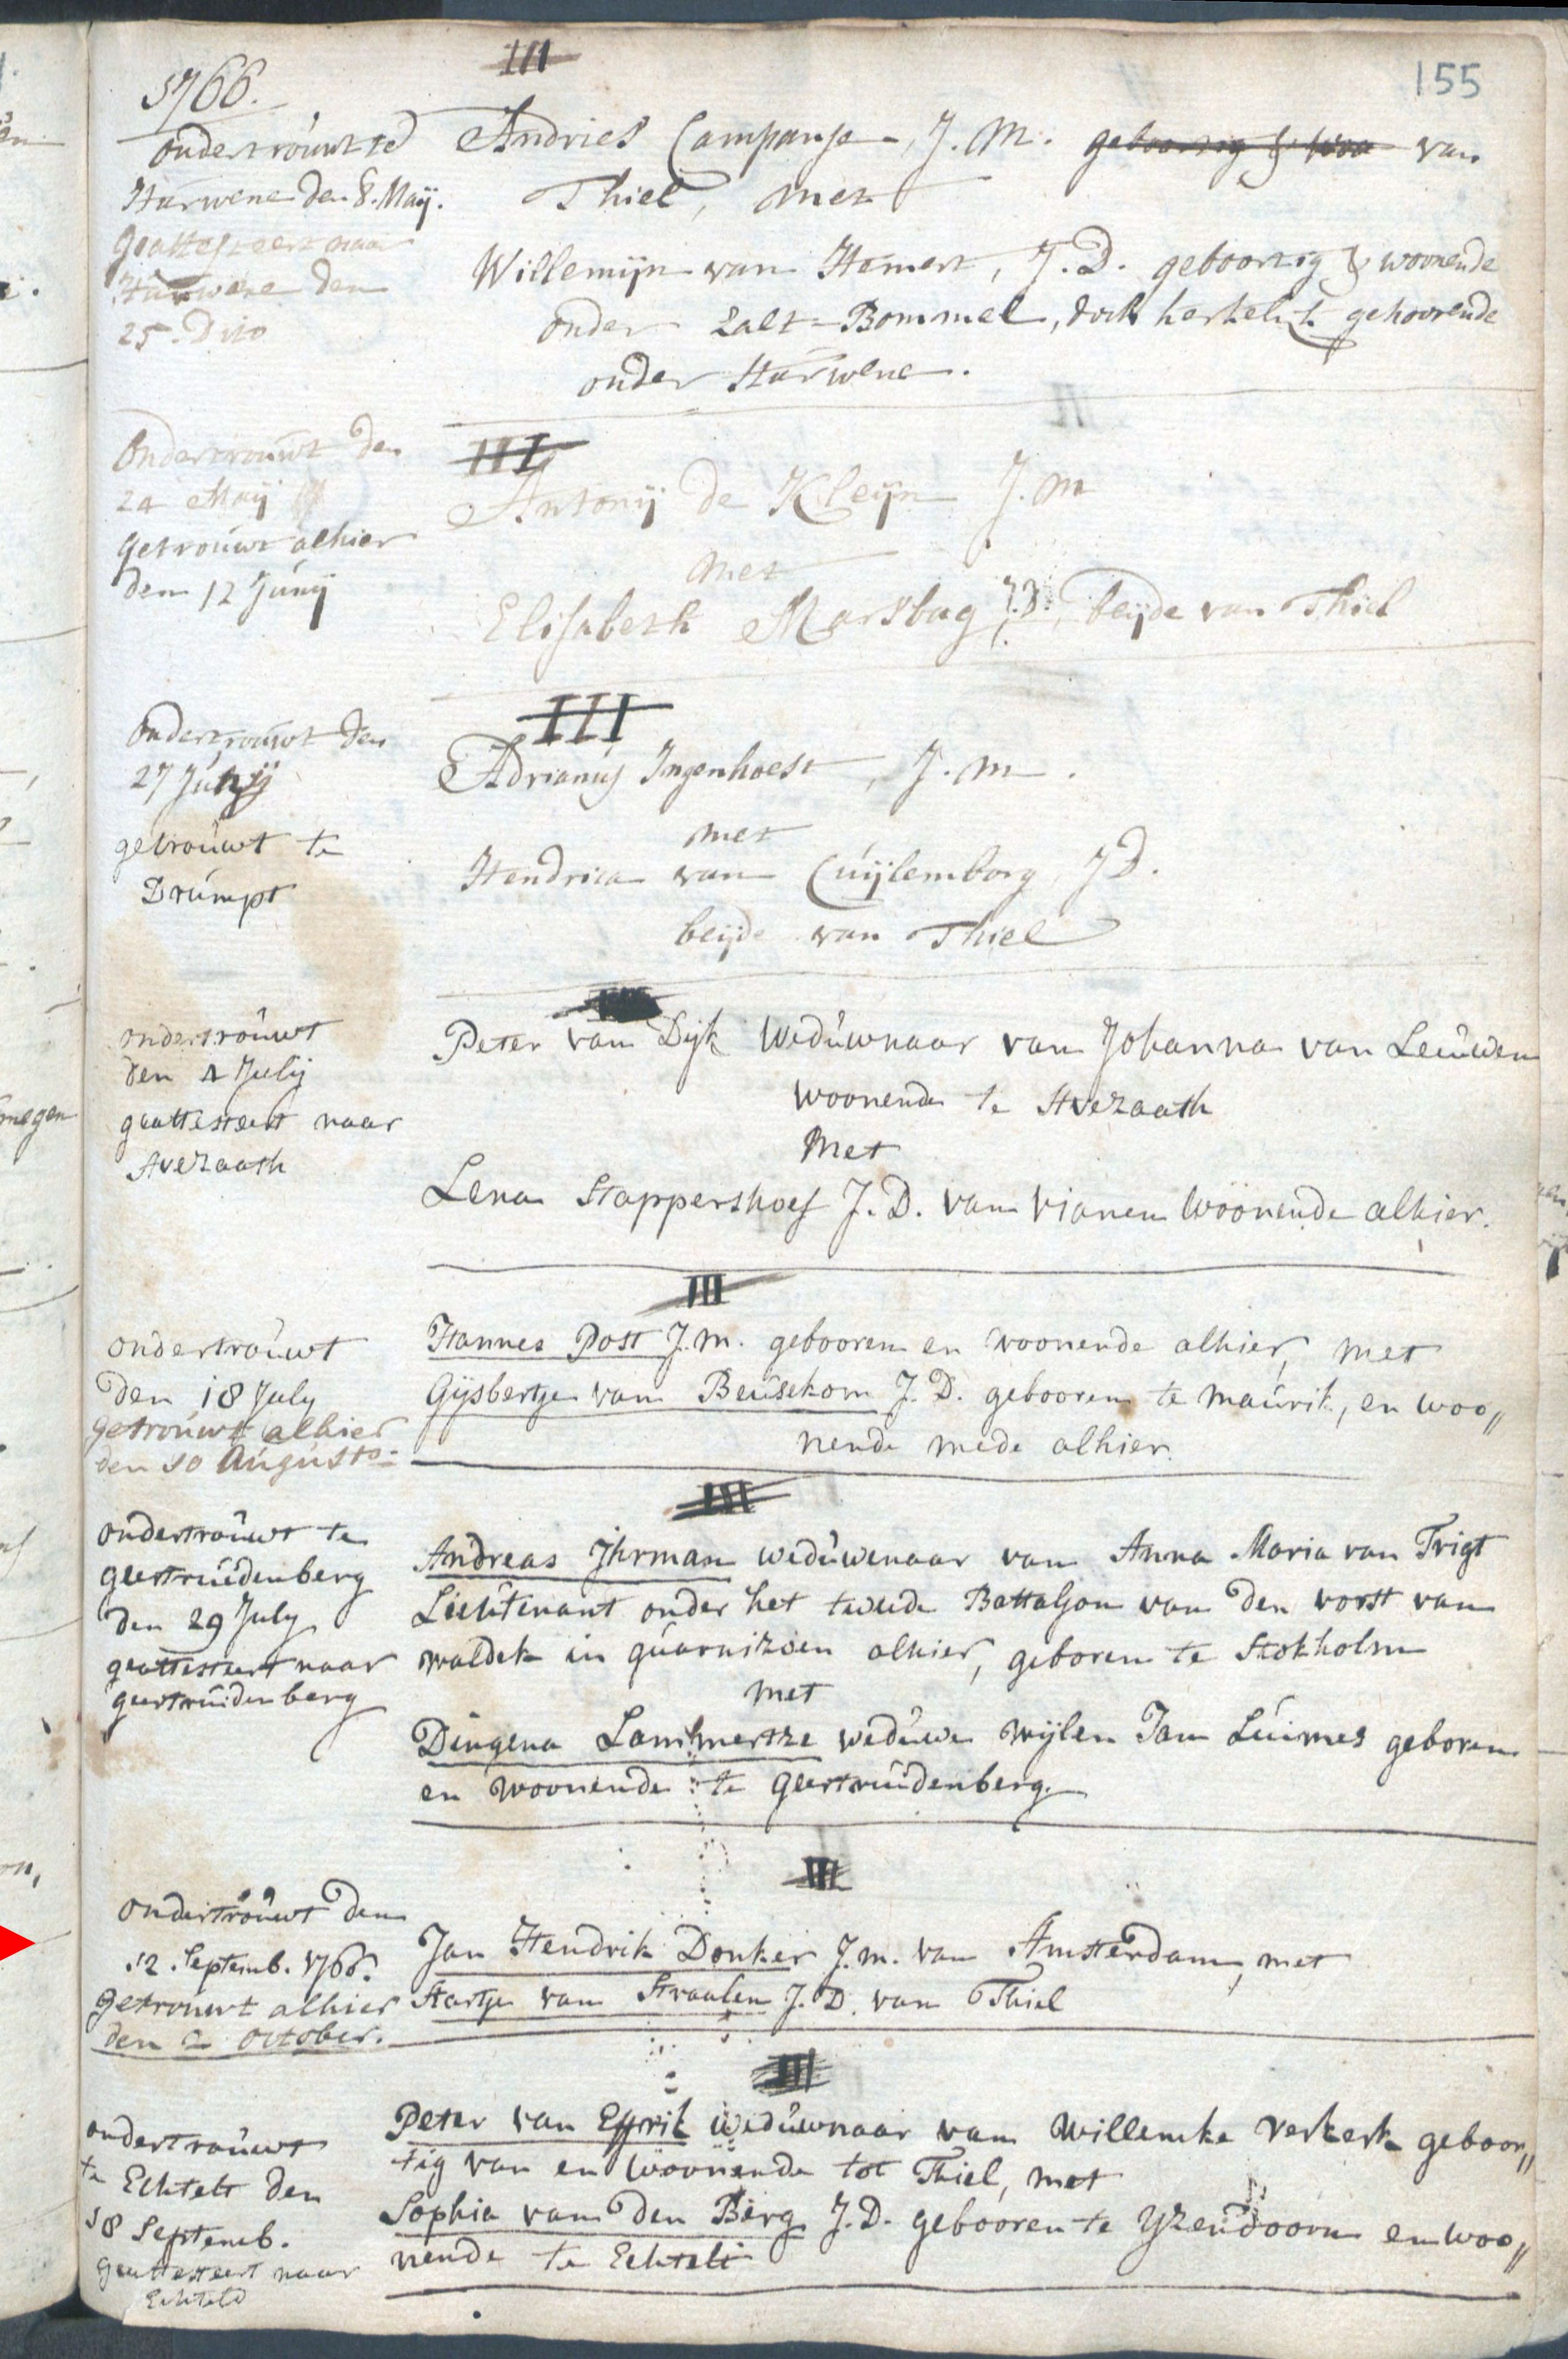 155
1766.
III
ondertrouwt te
Hurwene den 8. Maij.
Geattesteert naar
Hurwene den
25. Dito
Andries Campanje, J. M. geboortig & woo van
Thiel, met
Willemijn van Hemert, J. D. geboortig & woonende
onder Zalt-Bommel, doch kerkelijk gehoorende
onder Hurwene.
III
Ondertrouwt den
24 Maij
Getrouwt alhier
den 12 Junij
Antonij de Kleijn J. M
met
Elisabeth Marsbag, J. D. beijde van Thiel
III
Ondertrouwt den
27 Junij
getrouwt te
Drumpt
Adrianus Ingenhoest, J. M.
met
Hendrica van Cuijlemborg J D.
beijde van Thiel
III
ondertrouwt
den 4 July
geattesteert naar
Avezaath
Peter van Dijk Weduwnaar van Johanna van Leeuwen
woonende te Avezaath
Met
Lena Stappershoef J. D. van Vianen Woonende alhier.
III
ondertrouwt
den 18 July
getrouwt alhier
den 10 Augusto
Hannes Post J. m. gebooren en woonende alhier, met
Gijsbertje van Beusekom J. D. gebooren te Maurik, en woo„
nende mede alhier.
III
ondertrouwt te
Geertruidenberg
den 29 July
geattesteert naar
geertruidenberg
Andreas Ihrman weduwenaar van Anna Maria van Trigt
Lieutenant onder het tweede Battaljon van den vorst van
waldek in guarnizoen alhier, geboren te Stokholm
met
Dingena Lammertze weduwe Wijlen Jan Luimes geboren
en woonende te Geertruidenberg.
III
ondertrouwt den
12. Septemb. 1766.
Getrouwt alhier
den 2 October.
Jan Hendrik Donker J. m. van Amsterdam, met
Aartje van Straalen J. D. van Thiel
III
ondertrouwt
te Echtelt den
18 Septemb.
geattesteert naar
Echteld
Peter van Essrik weduwnaar van Willemke Verkerk geboor„
tig van en woonende tot Thiel, met
Sophia van den Berg J. D. gebooren te Yzendoorn en woo„
nende te Echtelt